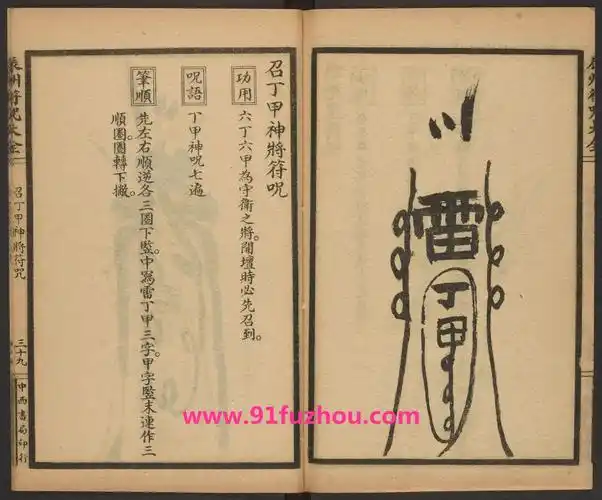 雷
丁
甲
召丁甲神將符呪
功用
六丁六甲為守衛之將。開壇時必先召到。
呪語
丁甲神呪七遍
筆順
先左右順逆各三圈下豎。中寫雷丁甲三字。甲字豎末連作三
順圈圈轉下撇。
辰州符咒大全
召丁甲神將符咒
三十九
中西書局印行
www.91fuzhou.com